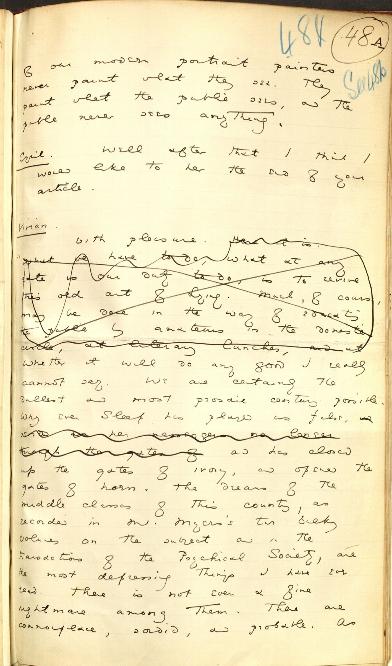 48A
484
See 48b
of our modern portrait painters
never paint what they see. They
paint what the public sees, and the
public never sees anything.
Cyril. Well after that I think I
would like to hear the end of your
article.
Vivian.
With pleasure. Here it is.
What we have to do, what at any
rate is our duty to do, is to revive
this old art of lying. Much, of course,
may be done in the way of educating
the public by amateurs in the domestic
circle, at literary lunches, and at
Whether it will do any good I really
cannot say. We are certainly the
dullest and most prosaic century possible.
Why even Sleep has played us false, and
as has closed
up the gates of ivory, and opened the
gates of horn. The dreams of the
middle classes of this country, as
recorded in Mr. Myers's two bulky
volumes on the subject and in the
transactions of the Psychical Society, are
the most depressing things I have ever
read. There is not even a fine
nightmare among them. They are
commonplace, sordid, and probable. As